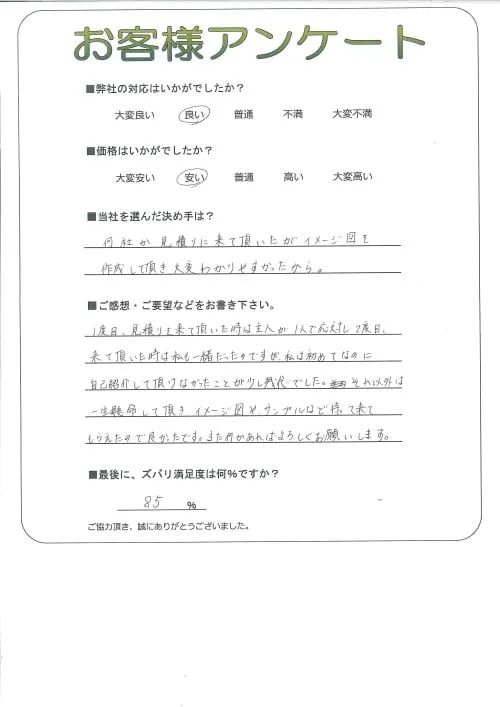 お客様アンケート
■弊社の対応はいかがでしたか？
大変良い 良い 普通 不満 大変不満
■価格はいかがでしたか？
大変安い 安い 普通 高い 大変高い
■当社を選んだ決め手は？
何社か見積りに来て頂いたがイメージ図を
作成して頂き大変わかりやすかったから。
■ご感想・ご要望などをお書き下さい。
1度目、見積りを来て頂いた時は主人が1人で応対し2度目、
来て頂いた時は私も一緒だったのですが、私は初めてなのに
自己紹介して頂けなかったことが少し残念でした。それ以外は
一生懸命して頂きイメージ図や、サンプルなど持って来て
もらえたので良かったです。また何かあればよろしくお願いします。
■最後に、ズバリ満足度は何％ですか？
85 %
ご協力頂き、誠にありがとうございました。